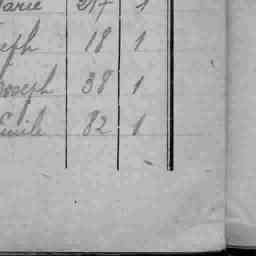 arie 217 1
seph 18 1
Joseph 38 1
Emile 82 1